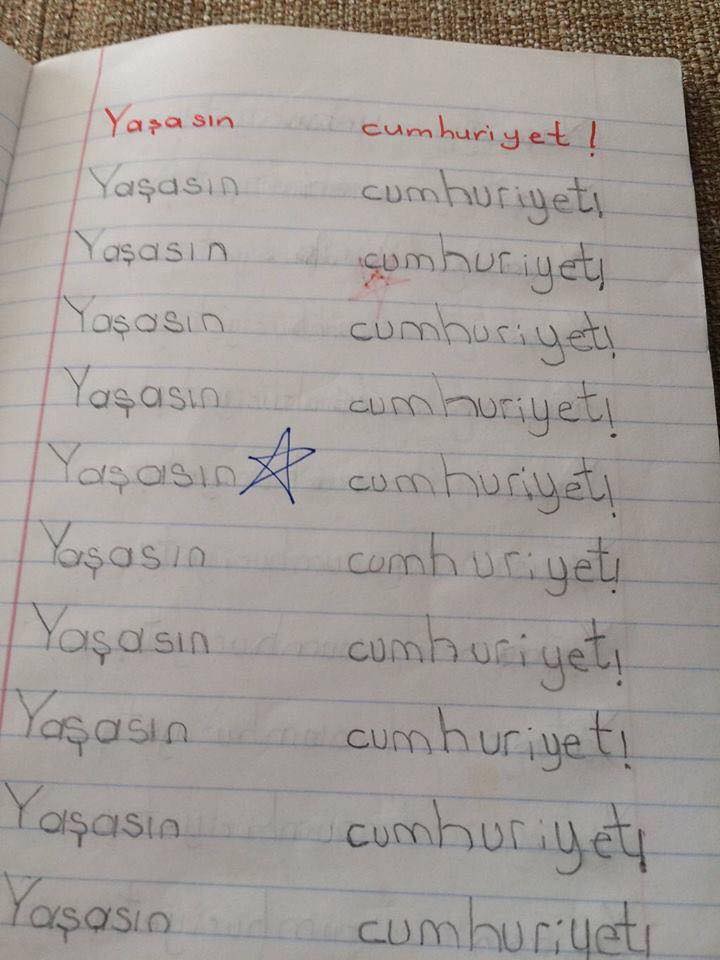 Yaşasın cumhuriyet!
Yaşasın cumhuriyet!
Yaşasın cumhuriyet!
Yaşasın cumhuriyet!
Yaşasın cumhuriyet!
Yaşasın cumhuriyet!
Yaşasın cumhuriyet!
Yaşasın cumhuriyet!
Yaşasın cumhuriyet!
Yaşasın cumhuriyet!
Yaşasın cumhuriyet!